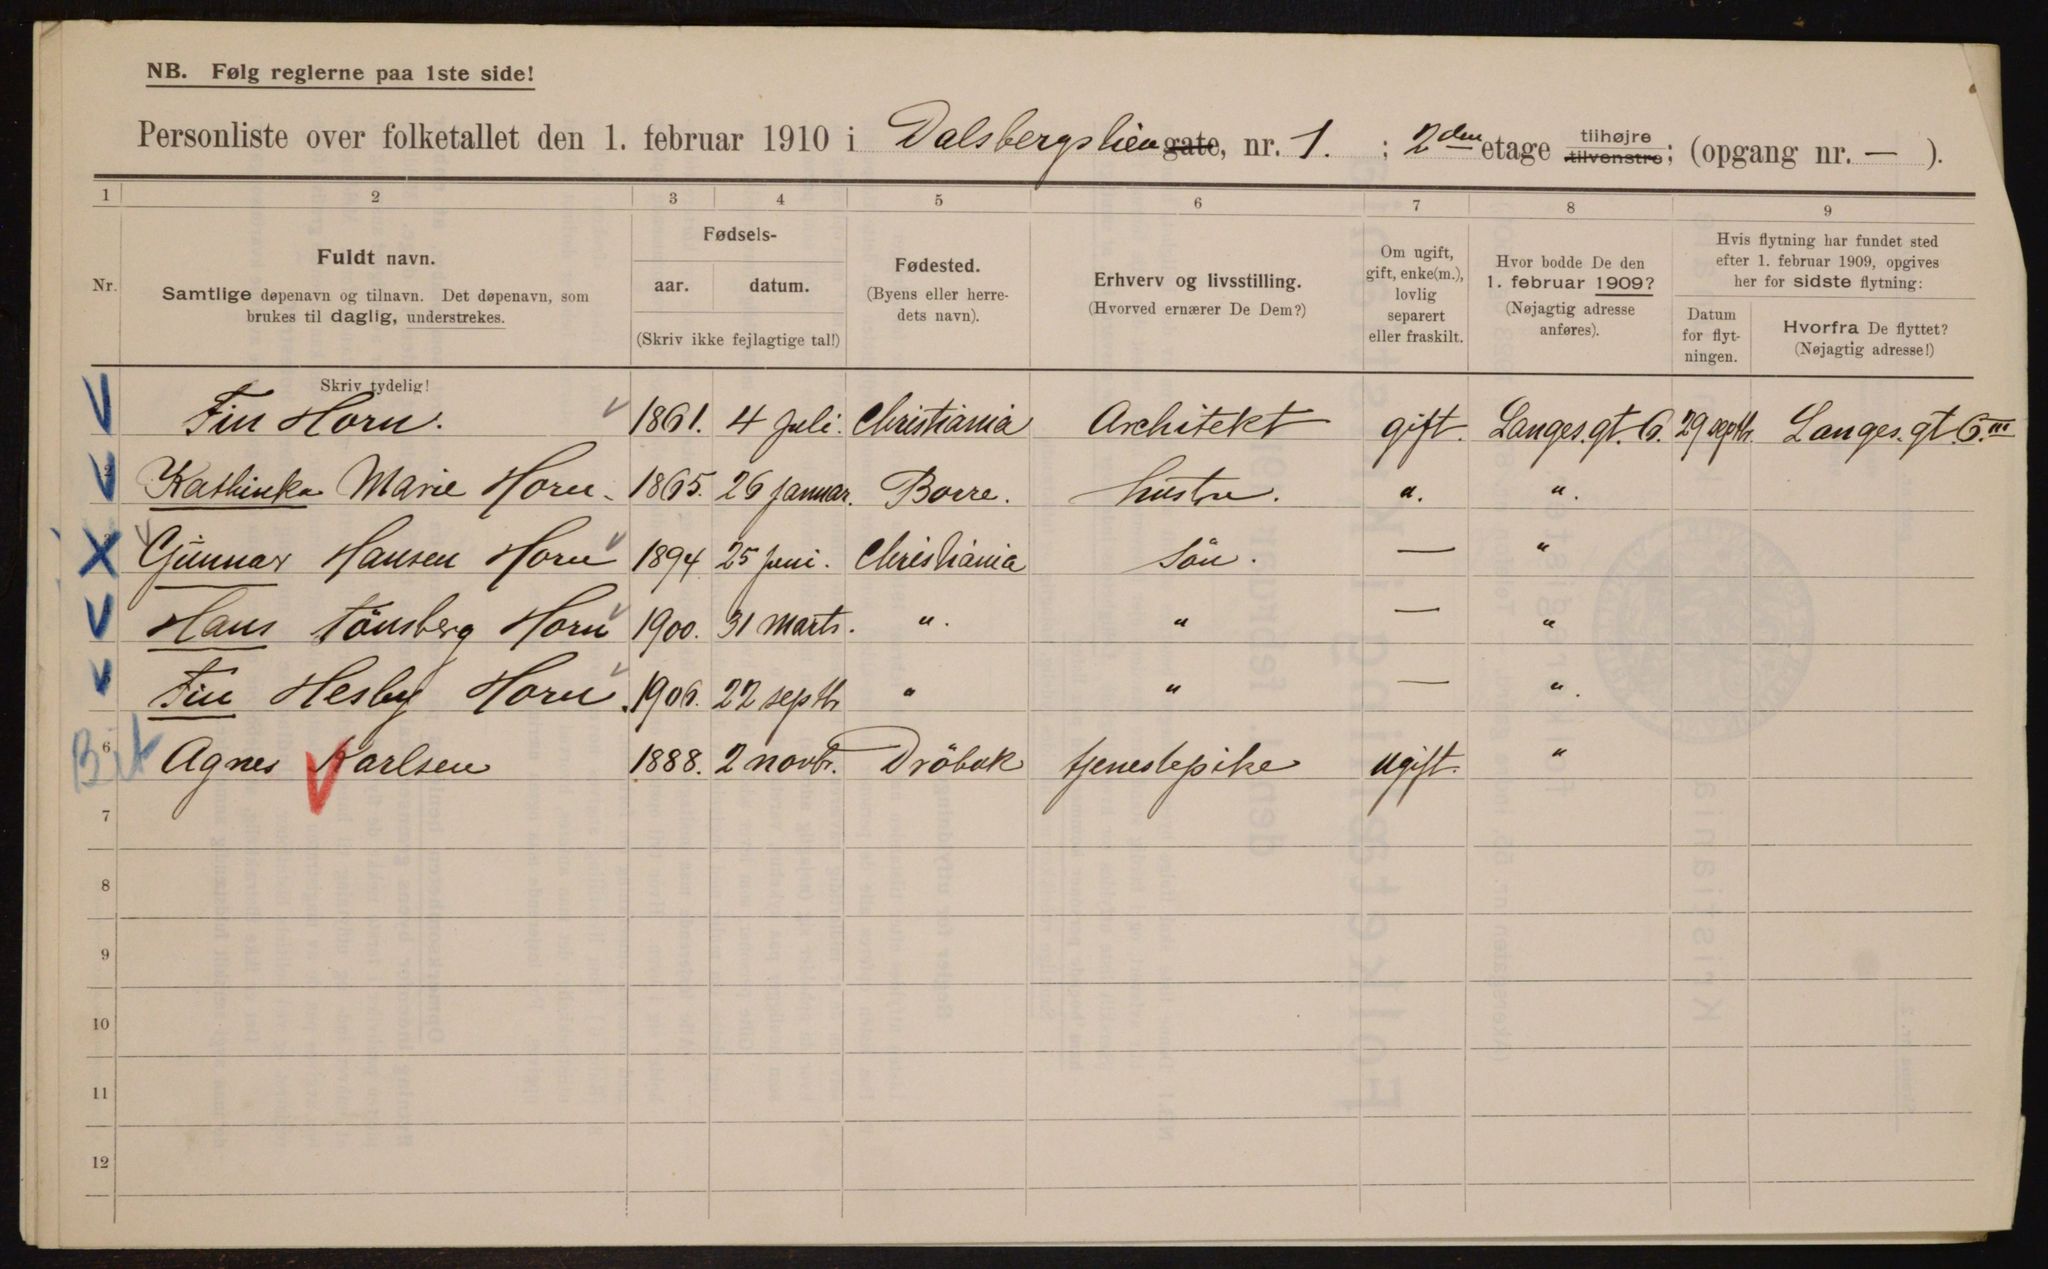 NB. Følg reglerne paa 1ste side!
Personliste over folketallet den 1. februar 1910 i Dalsbergstien gate, nr. 1. ; 2den etage tilhøjre tilvenstre; (opgang nr. — ).
1 2 3 4 5 6 7 8 9
Nr.
Fuldt navn.
Samtlige døpenavn og tilnavn. Det døpenavn, som
brukes til daglig, understrekes.
Skriv tydelig!
Fødsels-
aar. datum.
(Skriv ikke fejlagtige tal!)
Fødested.
(Byens eller herre-
dets navn).
Erhverv og livsstilling.
(Hvorved ernærer De Dem?)
Om ugift,
gift, enke(m.),
lovlig
separert
eller fraskilt.
Hvor bodde De den
1. februar 1909?
(Nøjagtig adresse
anføres).
Hvis flytning har fundet sted
efter 1. februar 1909, opgives
her for sidste flytning:
Datum
for flyt-
ningen.
Hvorfra De flyttet?
(Nøjagtig adresse!)
Fin Horn. 1861. 4 Juli. Christiania Architekt gift. Langes. gt. 6. 29 septbr. Langes. gt. 6.III
Kathinka Marie Horn. 1865. 26 Januar. Borre. hustru. ". ".
Gunnar Hansen Horn 1894 25 Juni. Christiania Sön. — "
Hans Tönsberg Horn 1900. 31 Marts. ". " — "
Fin Hesby Horn. 1906. 22 septbr " " — ".
6 Agnes Karlsen 1888. 2 novbr. Dröbak tjenestepike ugift. "
7
8
9
10
11
12